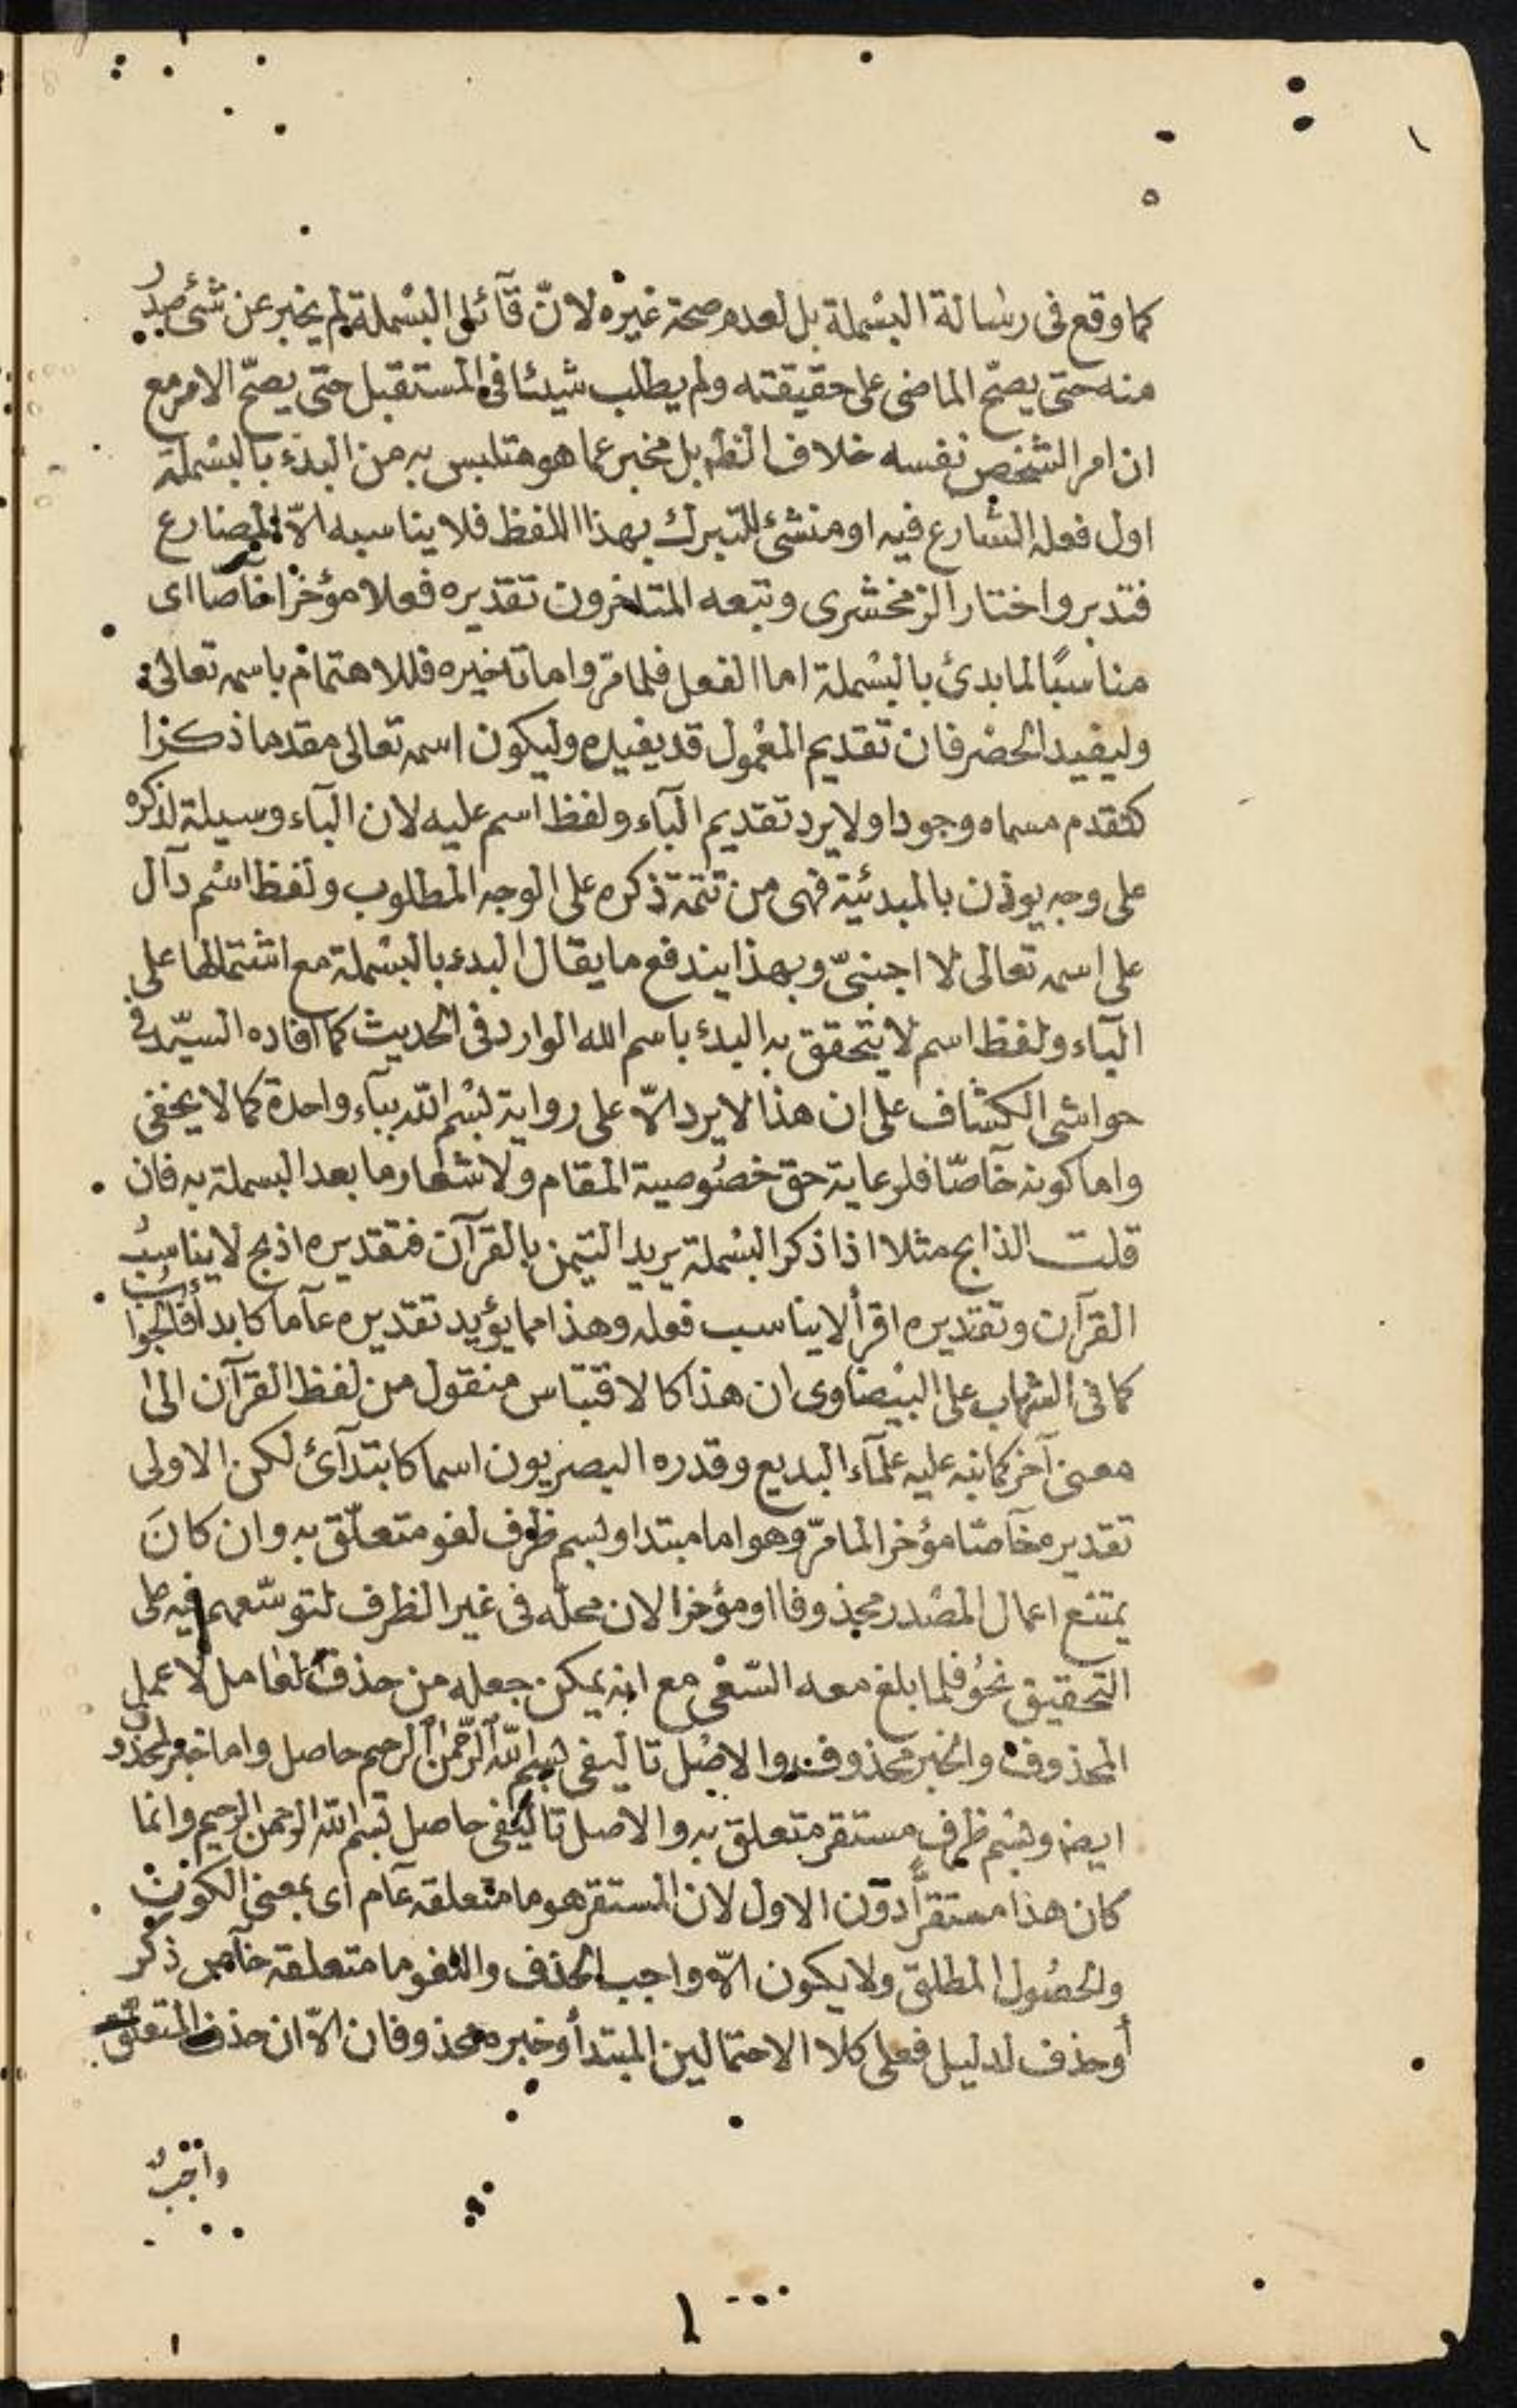 ٥
كما وقع فى رسالة البسْملة بل لعدم صحة غيره لانّ قآئل البسْملة لم يخبر عن شئ صدر
منه حتى يصحّ الماضى على حقيقته ولم يطلب شيئا فى المستقبل حتى يصحّ الامر مع
ان امر الشخص نفسه خلاف الظه بل مخبر عما هو متلبس به من البدء بالبسْملة
اول فعله الشارع فيه او منشئ للتبرك بهذا اللفظ فلا يناسبه الّا المضارع
فتدبر واختار الزمخشرى وتبعه المتاخرون تقديره فعلا مؤخرا خاصّا اى
مناسبًا لما بدئ بالبسْملة اما الفعل فلما مرّ واما تاخيره فللاهتمام باسمه تعالى
وليفيد الحصْر فان تقديم المعْمول قد يفيده وليكون اسمه تعالى مقدما ذكرا
كتقدم مسماه وجودا ولا يرد تقديم البآء ولفظ اسم عليه لان البآء وسيلة لذكره
على وجه يوذن بالمبدئية فهى من تتمة ذكره على الوجه المطلوب ولفظ اسْم دآل
على اسمه تعالى لا اجنبىّ وبهذا يندفع ما يقال البدء بالبسْملة مع اشتمالها على
البآء ولفظ اسم لا يتحقق به البدء باسم الله الوارد فى الحديث كما افاده السيّد فى
حواشى الكشاف على ان هذا لا يرد الّا على رواية بسْم الله ببآء واحدة كما لا يخفى
واما كونه خآصّا فلرعاية حق خصُوصية المقام ولاشعار ما بعد البسملة به فان
قلت الذابح مثلا اذا ذكر البسْملة يريد التيمن بالقرآن فتقديره اذبح لا يناسبُ
القرآن وتقديره اقرأ لا يناسب فعله وهذا مما يؤيد تقديره عآما كابدأ فالجواب
كما فى الشهاب على البيْضاوى ان هذا كالاقتباس منقول من لفظ القرآن الى
معنى آخر كما نبه عليه علمآء البديع وقدره البصريون اسما كابتدآئ لكن الاولى
تقديره خآصّا مؤخرا لما مرّ وهو اما مبتدا وبسم ظرف لغو متعلّق به وان كانَ
يمتنع اعمال المصْدر محذوفا او مؤخرا لان محلّه فى غير الظرف لتوسّعهم فيه على
التحقيق نحْو فلما بلغ معه السّعْى مع انه يمكن جعله من حذف العامل لا عمل
المحذوف والخبر محذوف والاصْل تاليفى بسم الله الرّحمن الرحيم حاصل واما خبر لمحذوف
ايضا وبسْم ظرف مستقر متعلق به والاصل تاليفى حاصل بسم الله الرحمن الرحيم وانما
كان هذا مستقرًّا دون الاول لان المستقر هو ما متعلقه عآم اى بمعنى الكون
والحصُول المطلق ولا يكون الّا واجب الحذف واللغو ما متعلقه خآص ذكر
أو حذف لدليل فعلى كلا الاحتمالين المبتدأ وخبره محذوفان الّا ان حذف المتعلق
واجبٌ